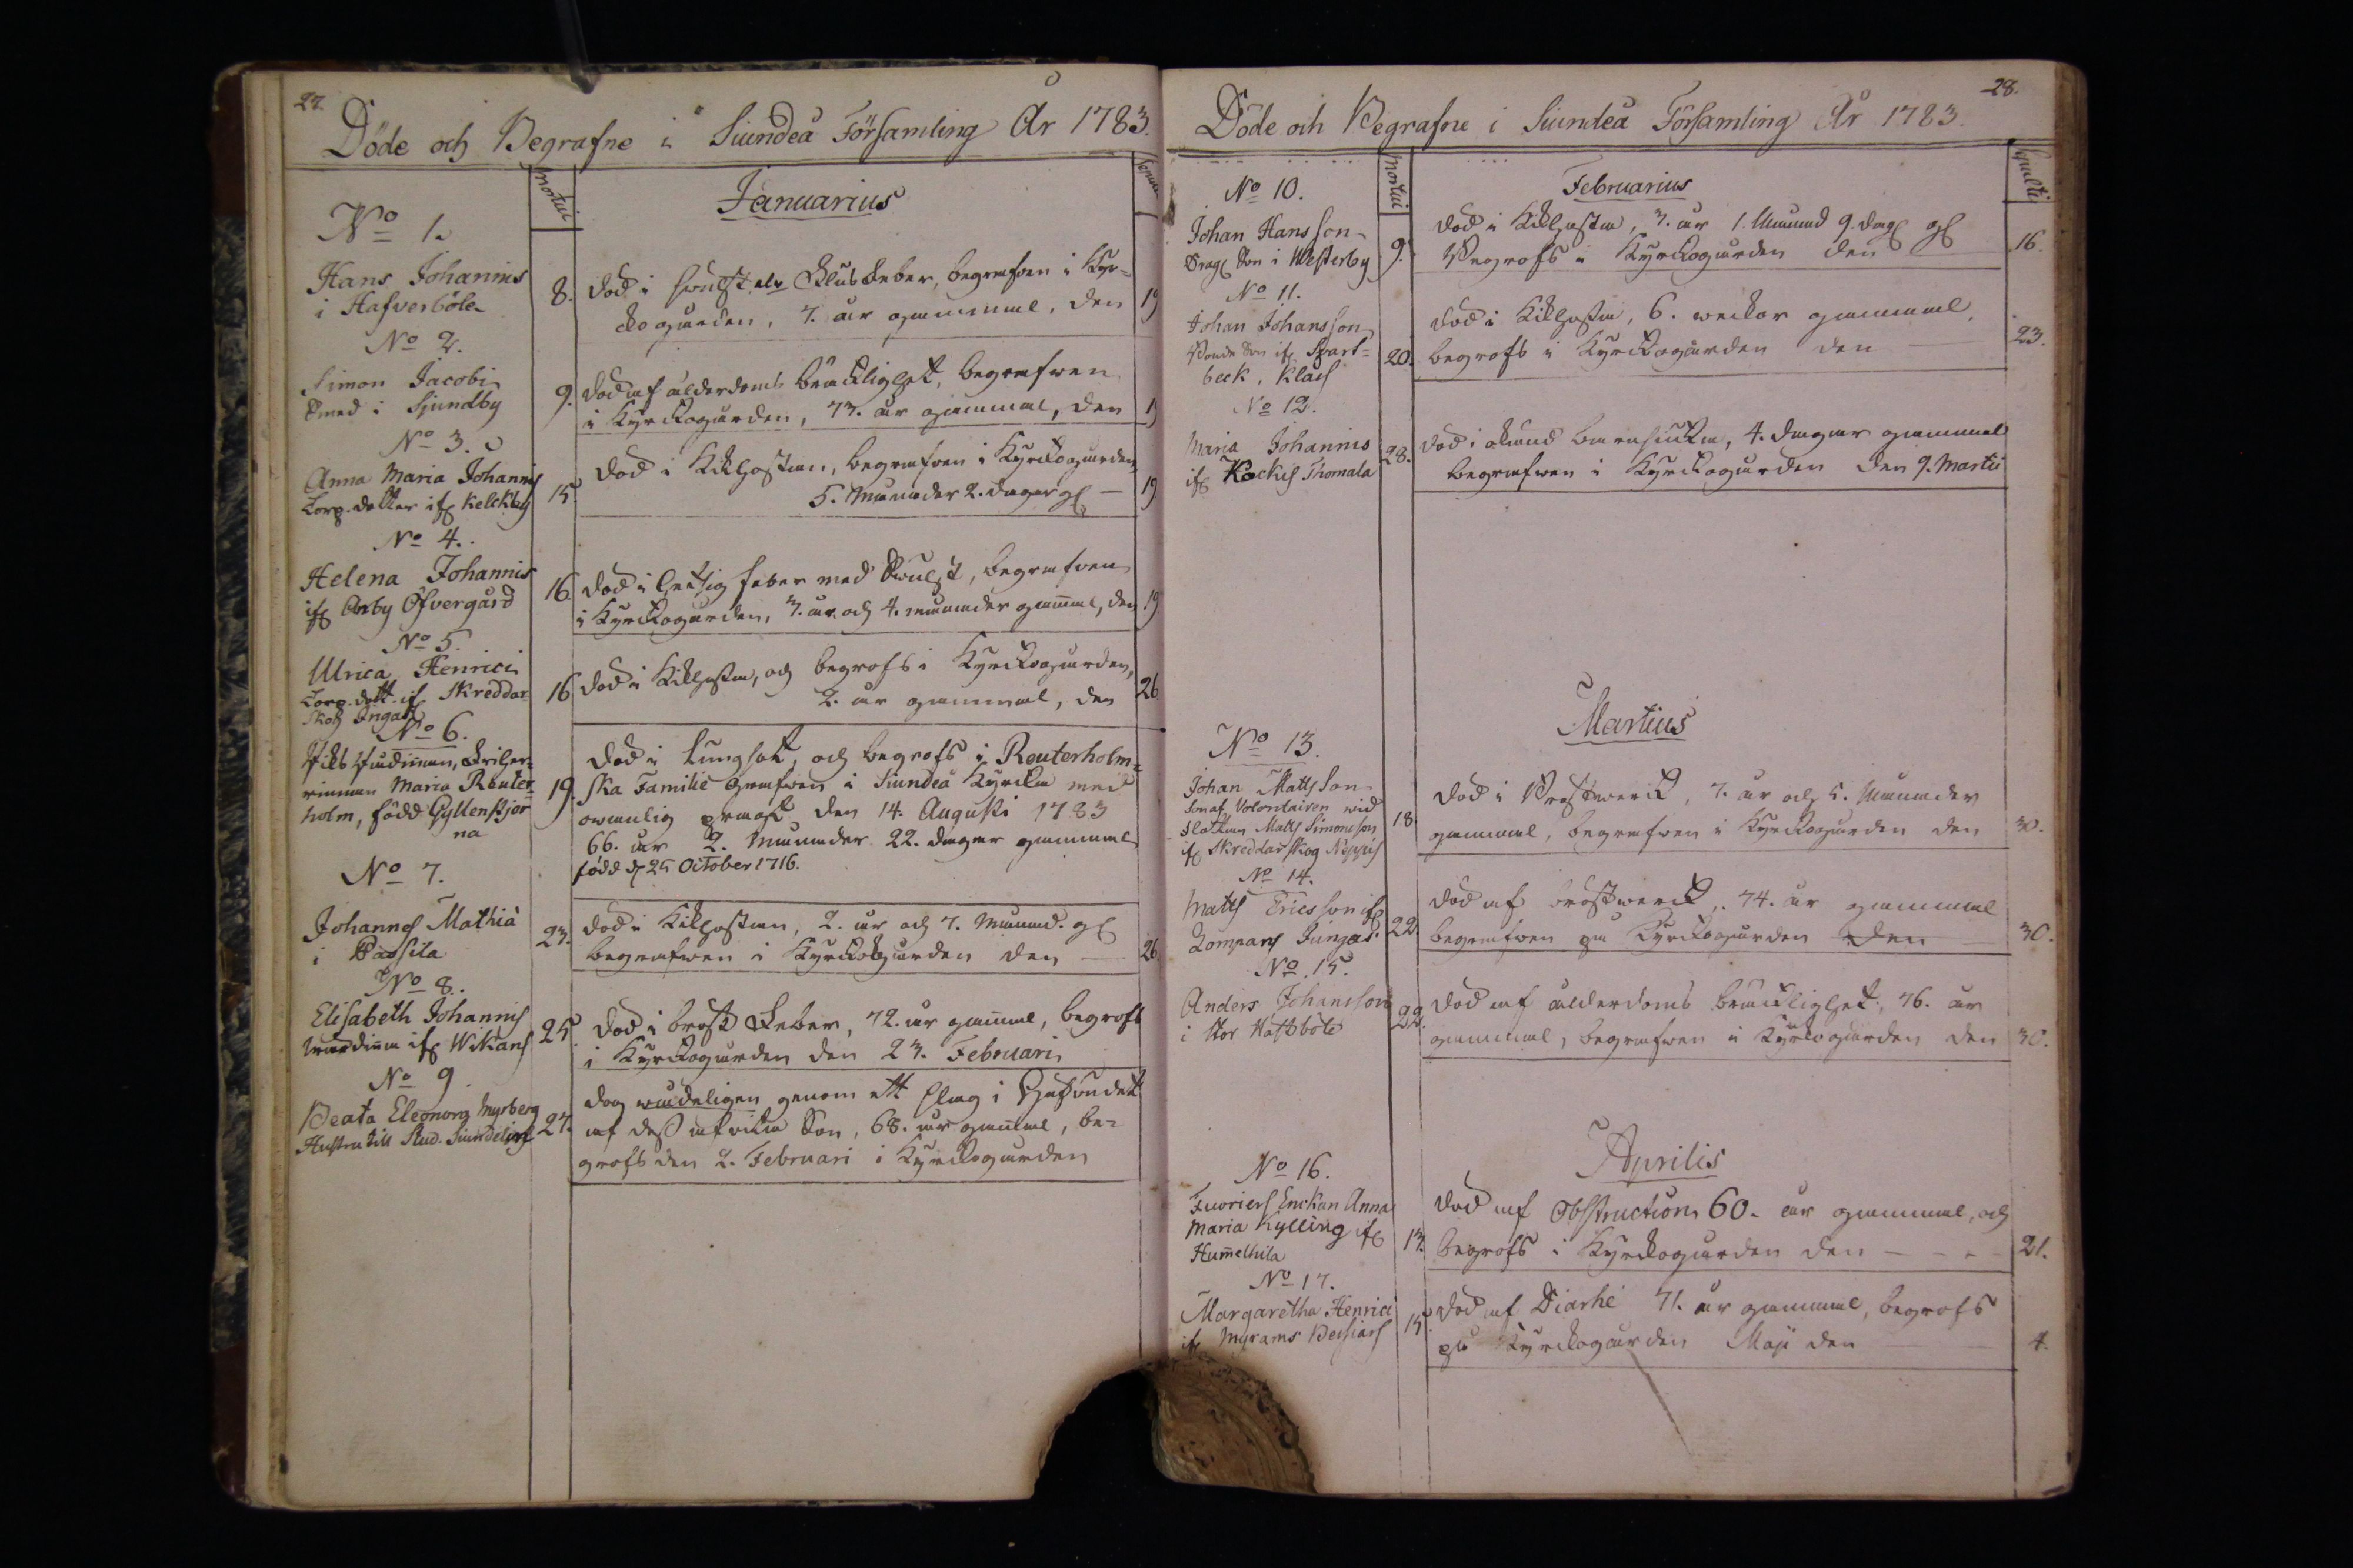 27.
Döde och Begrafne i Siundeå Församling År 1783.
Mortui
Januarius
No 1.
Hans Johannis
i Hafverböle
8.
död i swulst elr. Klub feber, begrafven i Kyr=
ckogården, 7. år gammal, den
19
No 2.
Simon Jacobi
Smed i Sjundby
9.
död af ålderdoms bräcklighet, begrafwen
i Kyrckogården, 73. år gammal, den
19
No 3.
Anna Maria Johannis
Torp. dotter if Kelckby
15
död i Kikhostan, begrafven i Kyrckogården
5. Månader 2. dagar gl —
19
No 4.
Helena Johannis
if Ånby Öfvergård
16
död i hetsig feber med Swulst, begrafven
i Kyrckogården, 3. år och 4. månader gammal, den
19
No 5.
Ulrica Henrici
Torp. dott. if Skreddar=
Skog Ingas
16
död i Kikhosta, och begrofs i Kyrckogården,
2. år gammal, den
26
No 6.
rinnan Maria Reuter=
holm, född Gyllenstjer
na
19.
död i Lungsot, och begrofs i Reuterholm=
ska Familie Grafven i Siundeå Kyrcka med
owanlig pragt den 14. Augusti 1783
66. år 2. Månader 22. dagar gammal
född d 25 October 1716.
No 7.
Johannes Mathiæ
i Passila
23.
död i Kikhostan, 2. år och 7. Månad. gl
begrafwen i Kyrckogården den —
26.
No 8.
Elisabeth Johannis
Wärdinna if Wikans
25.
död i bröst feber, 72. år gammal, begrofs
i Kyrckogården den 23. Februari
No 9.
Beata Eleonora Myrberg
Hustru till Stud. Siundeling
27.
dog wådeligen genom ett slag i Hufvudet
af dess afvita Son, 68. år gammal, be=
grofs den 2. Februari i Kyrckogården
28.
Döde och Begrafne i Siundeå Församling År 1783.
Mortui
Februarius
Sepulti
No 10.
Johan Hansson
Drag. Son i Westerby
9.
död i Kikhosta, 3. år 1. Månad 9. dag. gl
Begrofs i Kyrckogården den
16.
No 11.
Johan Johansson
Bonde Son if Svart=
beck, Klais
20.
död i Kikhosta, 6. weckor gammal,
begrofs i Kyrckogården den —
23.
No 12.
Maria Johannis
if Kockis Thomala
28.
död i okänd barnsiucka, 4. dagar gammal
begrafwen i Kyrckogården den 9. Martii
Martius
No 13.
Johan Matts Son
Son af Volontairen wid
Slottian Matts Simonsson
if Skreddarskog Nippis
18.
död i Bröstwerck, 7. år och 5. Månader
gammal, begrafwen i Kyrckogården den
30.
No 14.
Matts Ericsson if
Kompans Jungas.
22.
död af bröstwerck, 74. år gammal
begrafwen på Kyrckogården den
30.
No 15.
Anders Johansson
i Stor Hattböle
22.
död af ålderdoms bräcklighet, 76. år
gammal, begrafwen i Kyrkogården den
30.
Aprilis
No 16.
Fuoriers Enckan Anna
Maria Kylling if
Hummelkila
13.
död af Obstruction 60. år gammal, och
begrofs i Kyrckogården den — — —
21.
No 17.
Margaretha Henrici
if Myrans Beisiars
15.
död af Diarhé 71. år gammal, begrofs
på Kyrckogården Maji den
4.